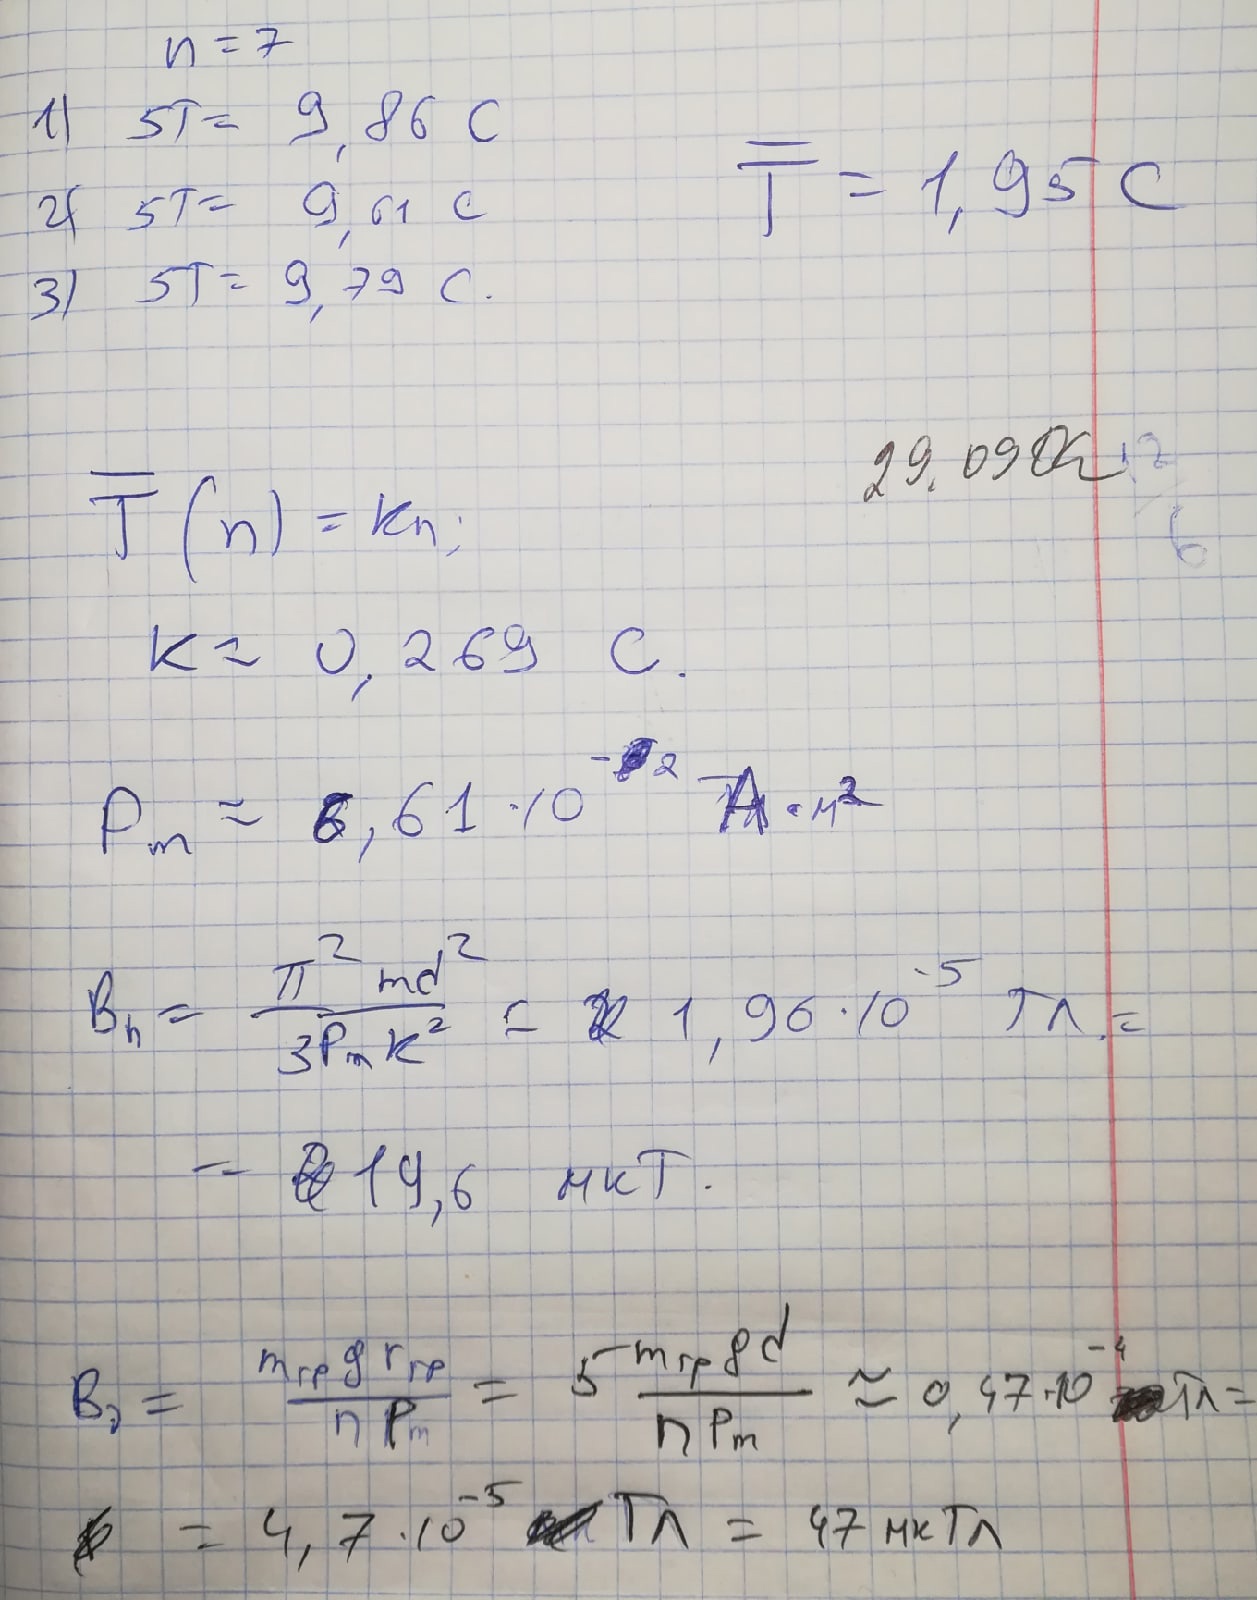 n = 7
1) 5T = 9,86 с
2) 5T = 9,61 с
3) 5T = 9,79 с.
T̿ = 1,95 с
29.09
T̿(n) = kn;
k ≈ 0,269 с.
Pm ≈ 6,61·10⁻² А·м²
Bп = π²md² / 3Pmk² = 1,96·10⁻⁵ Тл =
= 19,6 мкТ.
B = mгр g rгр / n Pm = 5 mгр g d / n Pm ≈ 0,47·10⁻⁴ Тл =
= 4,7·10⁻⁵ Тл = 47 мкТл